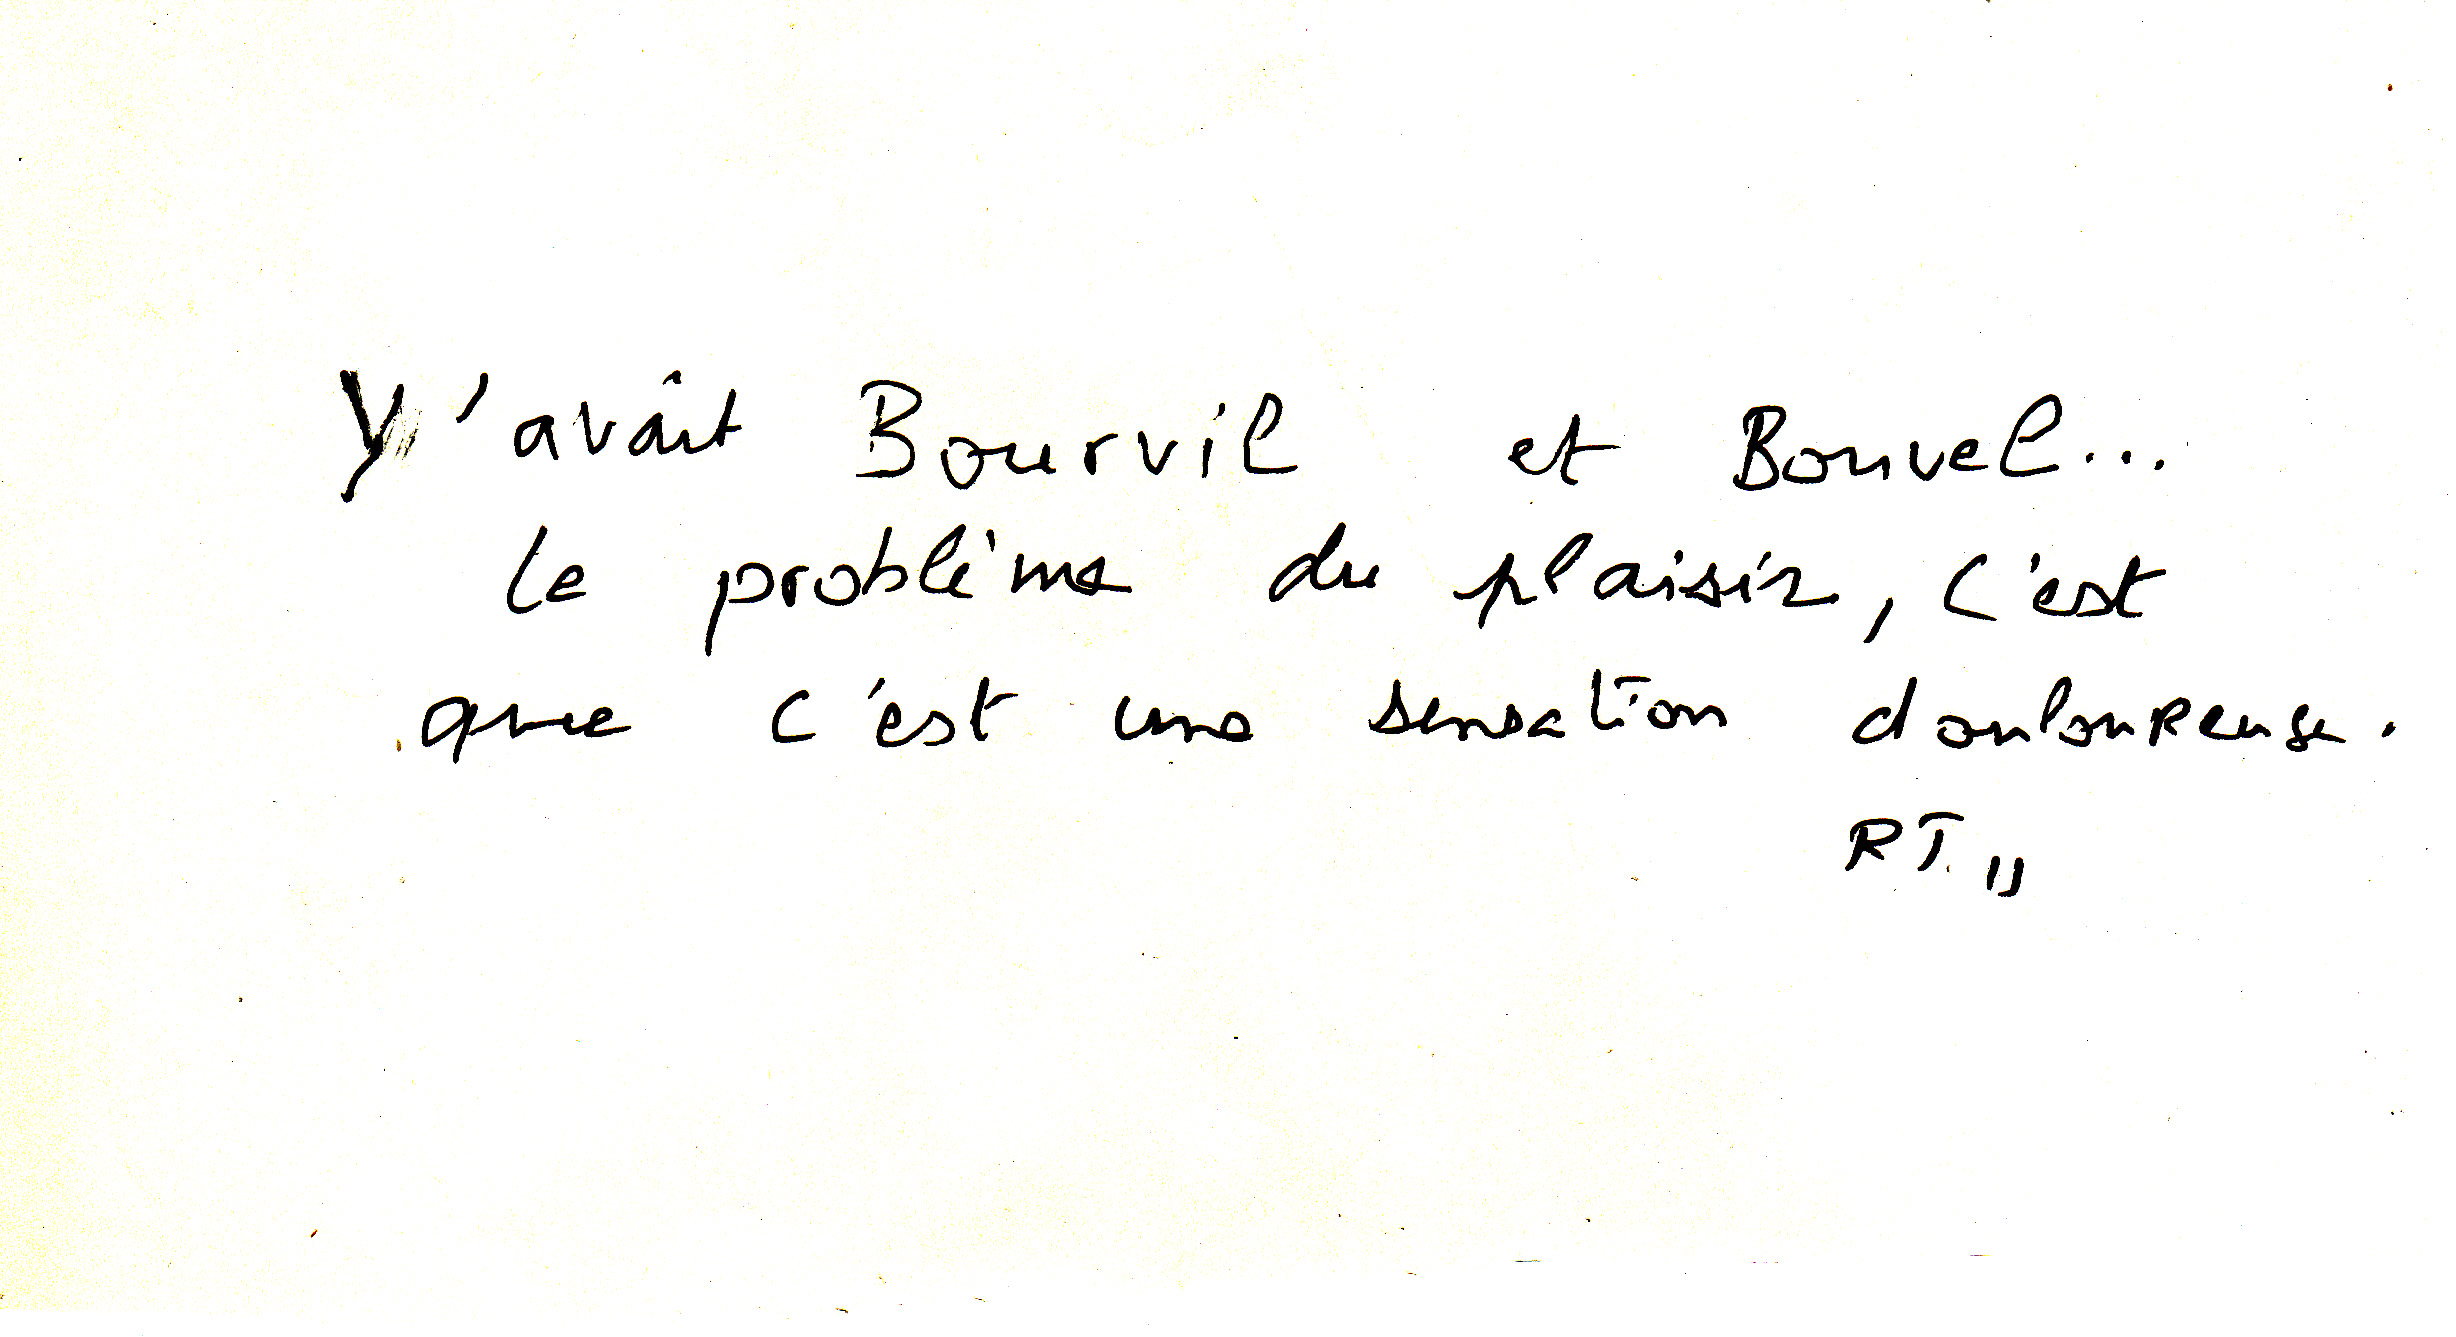 Y'avaît Bourvil et Bouvel...
Le problème du plaisir, c'est
que c'est une sensation douloureuse.
RT.